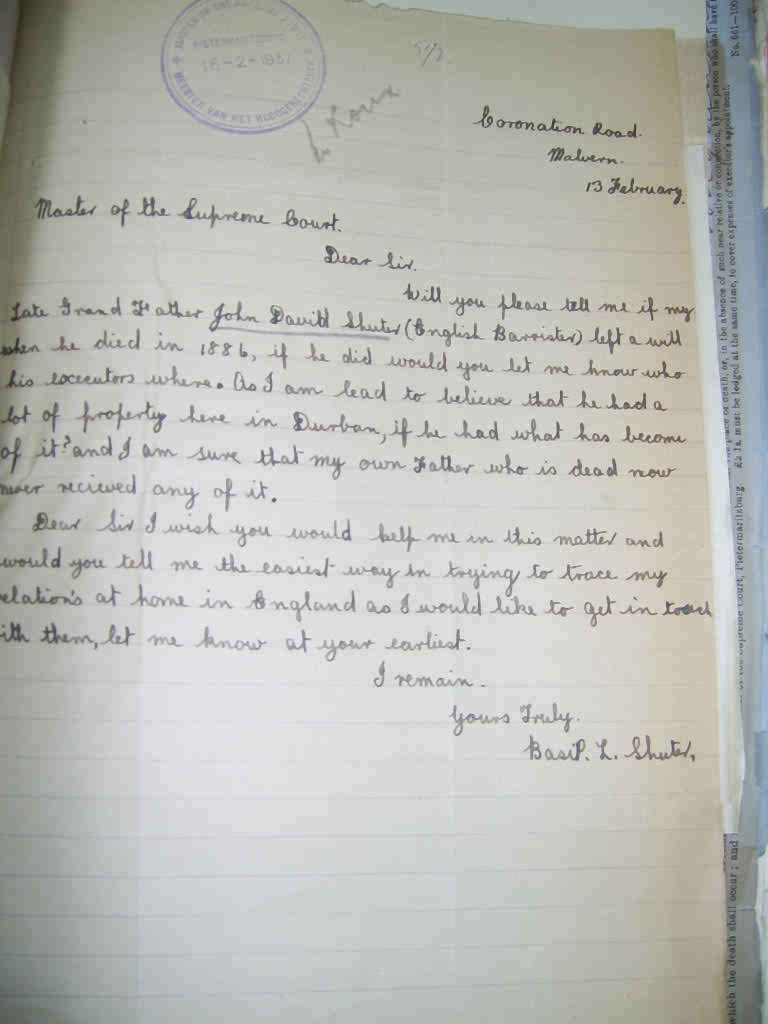 MASTER OF THE SUPREME
PIETERMARITZBURG
16-2-1937
MEESTER VAN HET HOOGGERECHTSHOF
Le Roux
Coronation Road.
Malvern.
13 February.
Master of the Supreme Court.
Dear Sir.
Will you please tell me if my
Late Grand Father John Davitt Shuter (English Barrister) left a will
when he died in 1886, if he did would you let me know who
his excecutors where. As I am lead to believe that he had a
lot of property here in Durban, if he had what has become
of it? and I am sure that my own Father who is dead now
never recieved any of it.
Dear Sir I wish you would help me in this matter and
would you tell me the easiest way in trying to trace my
relation's at home in England as I would like to get in touch
with them, let me know at your earliest.
I remain.
Yours Truly.
Basil. L. Shuter,
No. 661—100
by the person who shall have
the place of death, or, in the absence of such near relative or connection,
£2 1s. must be lodged at the same time, to cover expenses of executor's appointment.
of the Supreme Court, Pietermaritzburg
which the death shall occur; and